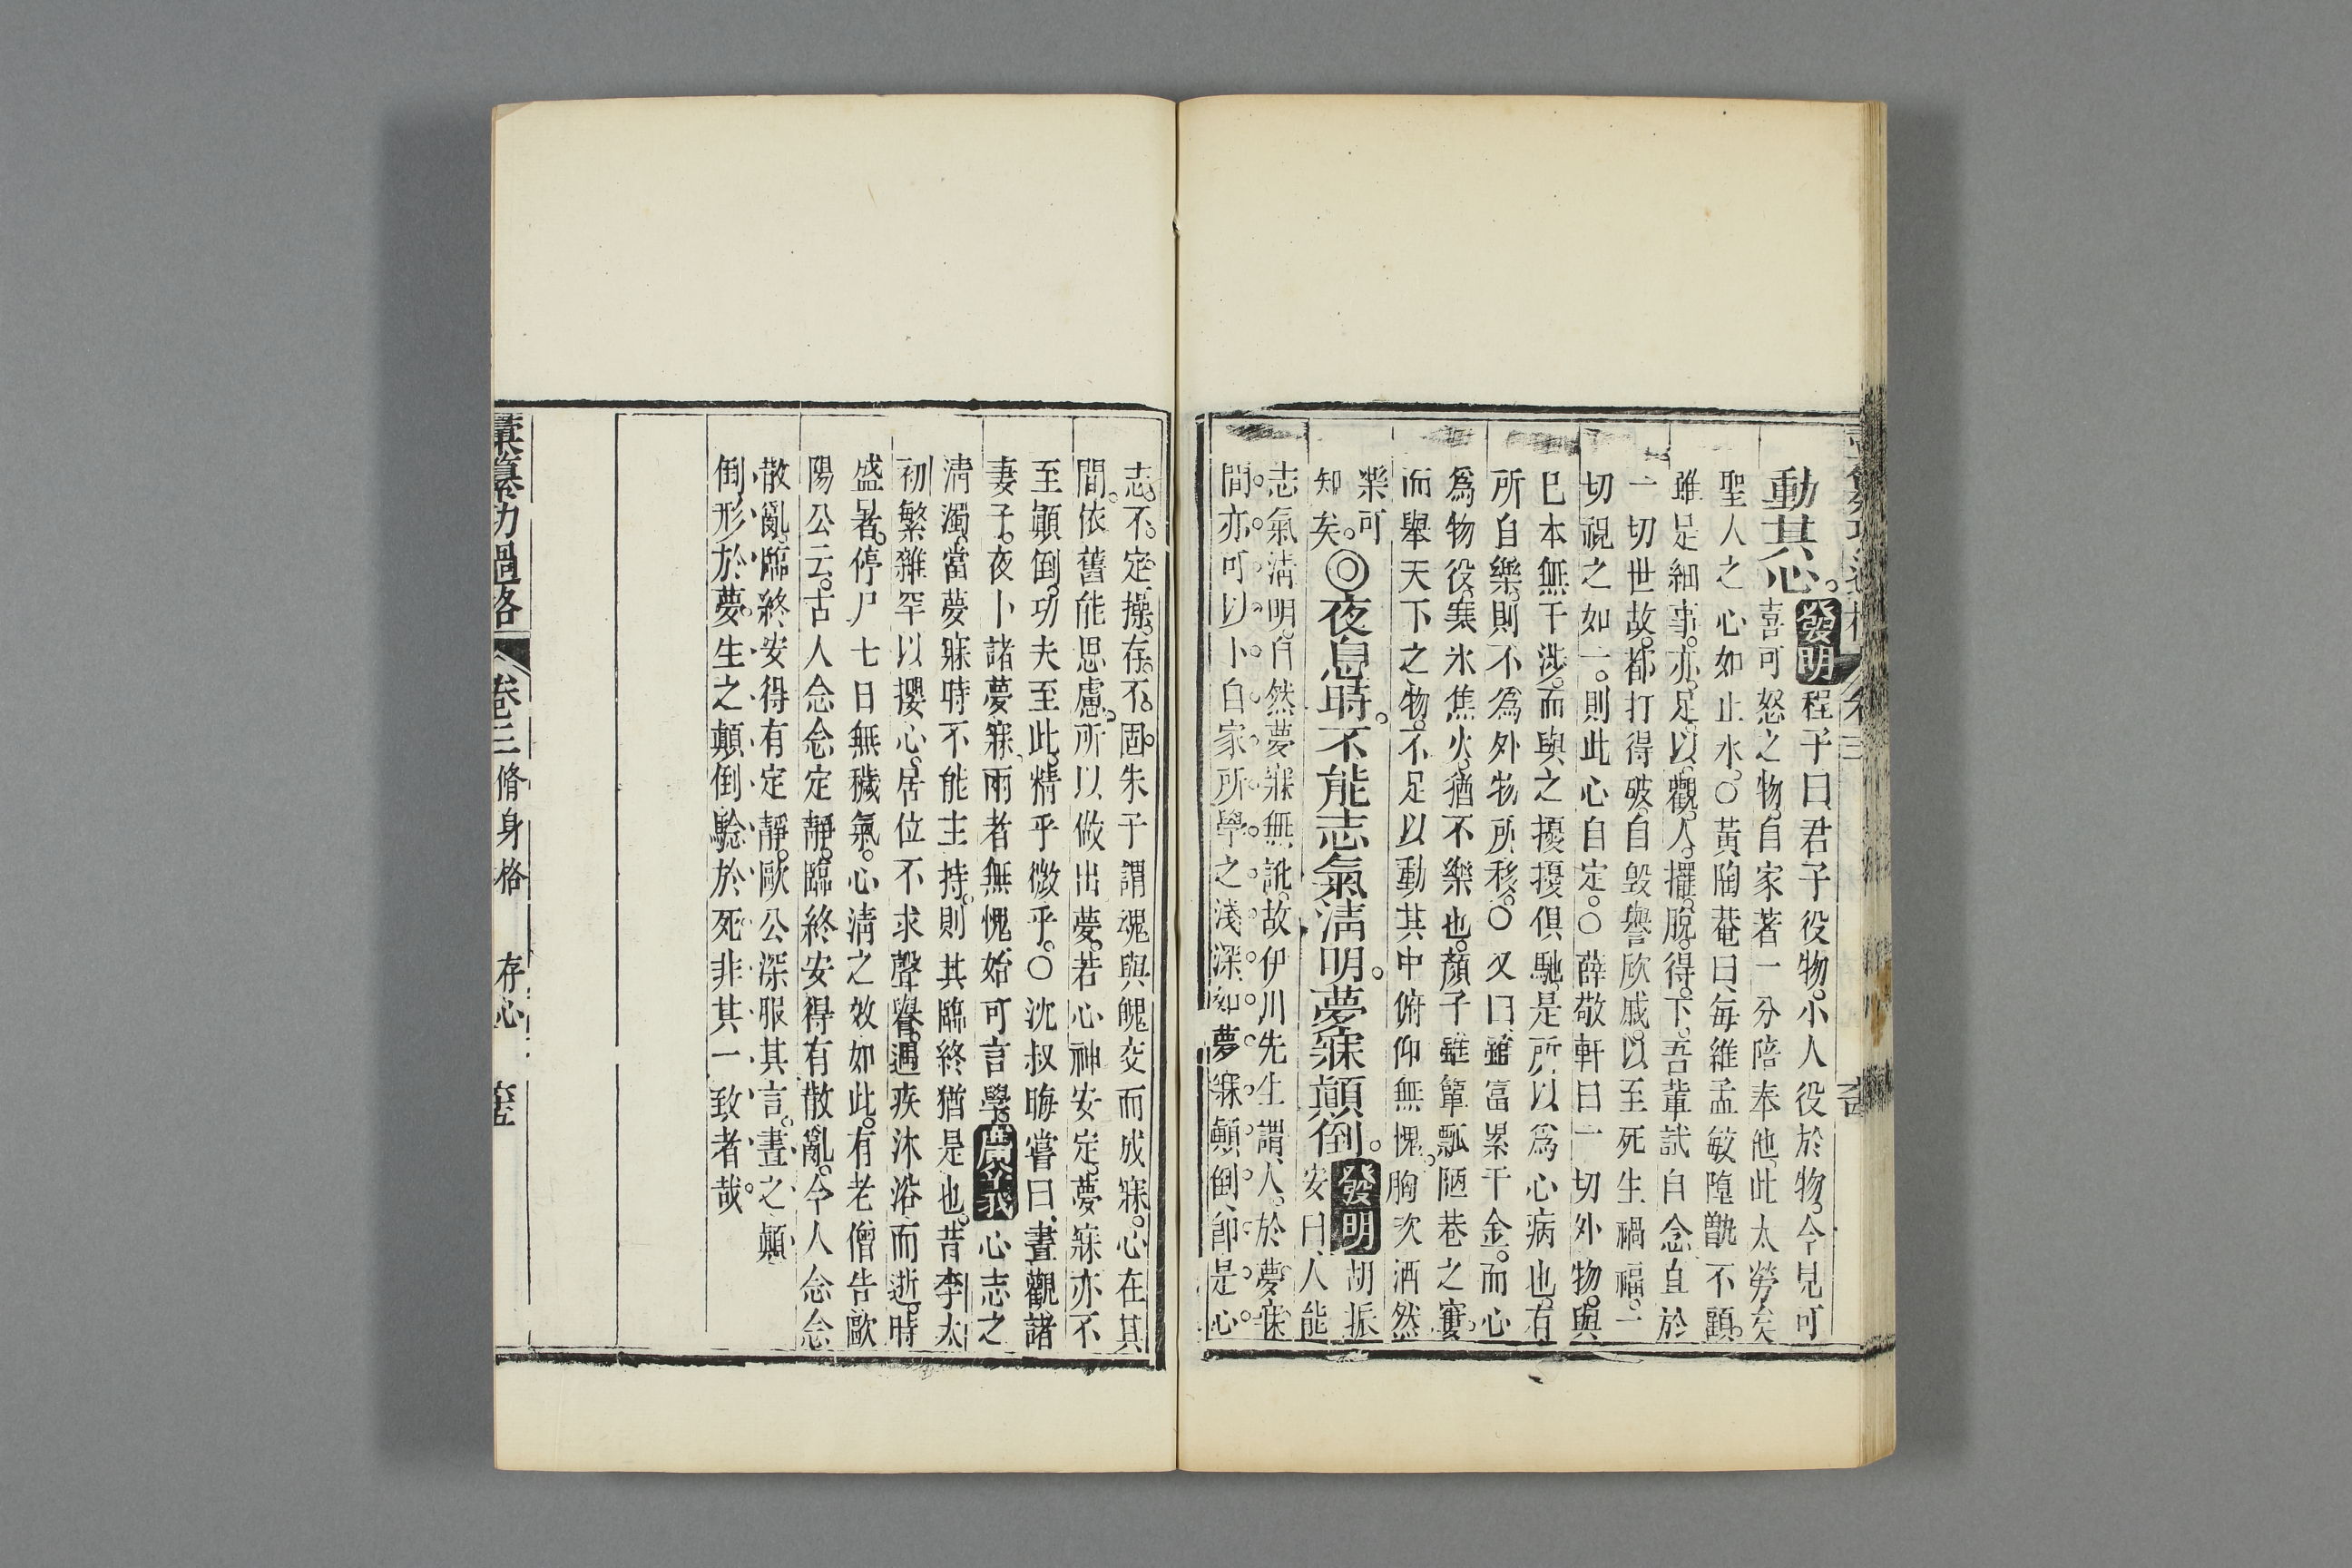 動其心。發明程子曰君子役物。小人役於物。今見可
喜可怒之物。自家著一分陪奉他。此太勞矣
聖人之心如止水。○黃陶菴曰、每維孟敏墮甑不顧。
雖足細事。亦足以觀人。擺脫得下。吾輩試自念直於
一切世故。都打得破。自毀譽欣戚。以至死生禍福。一
切視之如一。則此心自定。○薛敬軒曰一切外物。與
已本無干涉。而與之擾擾俱馳。是所以為心病也。有
所自樂。則不為外物所移。○又曰、雖富累千金。而心
為物役。寒氷焦火。猶不樂也。顏子雖簞瓢陋巷之窶。
而舉天下之物。不足以動其中俯仰無愧。胸次洒然
樂可
知矣。◎夜息時。不能志氣淸明。夢寐顚倒。發明胡振
安曰、人能
志氣淸明。自然夢寐無訛。故伊川先生謂、人於夢寐
間。亦可以卜自家所學之淺深。如夢寐顚倒、卽是心
志不定。操存不固。朱子謂魂與魄交而成寐。心在其
間。依舊能思慮。所以做出夢。若心神安定。夢寐亦不
至顚倒。功夫至此。精乎微乎。○沈叔晦嘗曰、晝觀諸
妻子。夜卜諸夢寐。兩者無愧。始可言學。廣公我心志之
淸濁。當夢寐時不能主持。則其臨終猶是也。昔李太
初繁雜罕以攖心。居位不求聲譽。遇疾沐浴而逝。時
盛暑。停尸七日無穢氣。心淸之效如此。有老僧告歐
陽公云。古人念念定靜。臨終安得有散亂。今人念念
散亂。臨終安得有定靜。歐公深服其言。晝之顚
倒。形於夢。生之顚倒。驗於死。非其一致者哉。
彙纂功過格 卷三 脩身格 存心